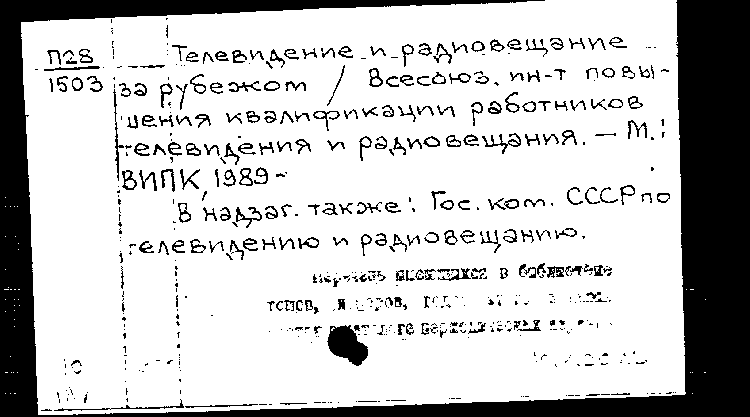 П28
1503
Телевидение и радиовещание
за рубежом / Всесоюз. ин-т повы-
шения квалификации работников
телевидения и радиовещания. — М.:
ВИПК, 1989-
В надзаг. также: Гос. ком. СССР по
телевидению и радиовещанию.
Перечень имеющихся в библиотеке
томов, номеров,
10